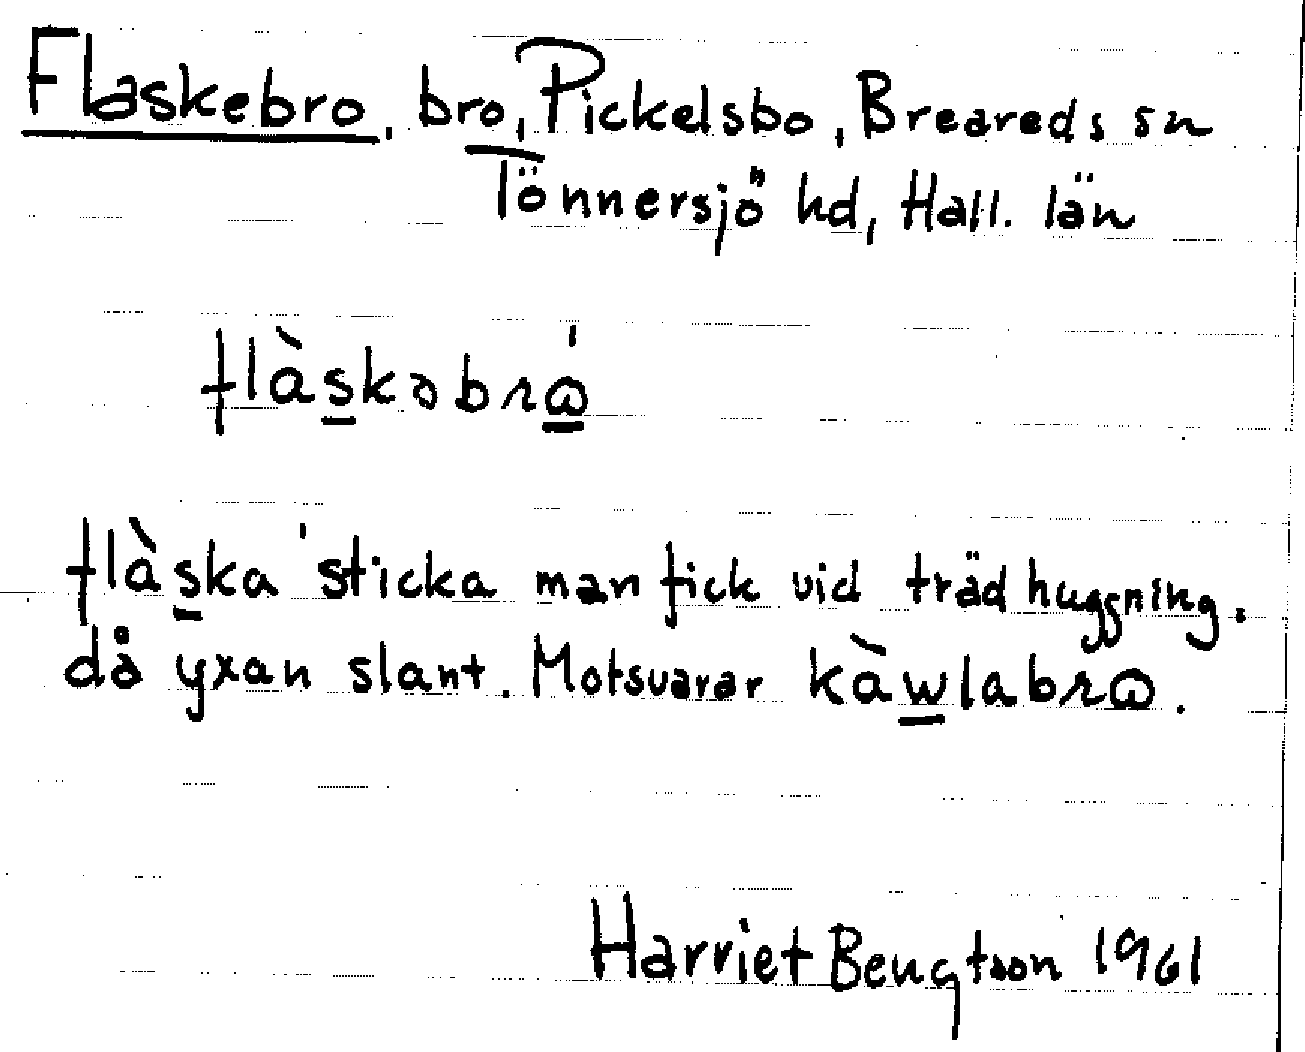 Flaskebro, bro, Pickelsbo, Breareds sn
Tönnersjö hd, Hall. län
flàskəbrɷ́
flàska 'sticka man fick vid trädhuggning.
då yxan slant. Motsvarar kàwlabrɷ.
Harriet Bengtson 1961